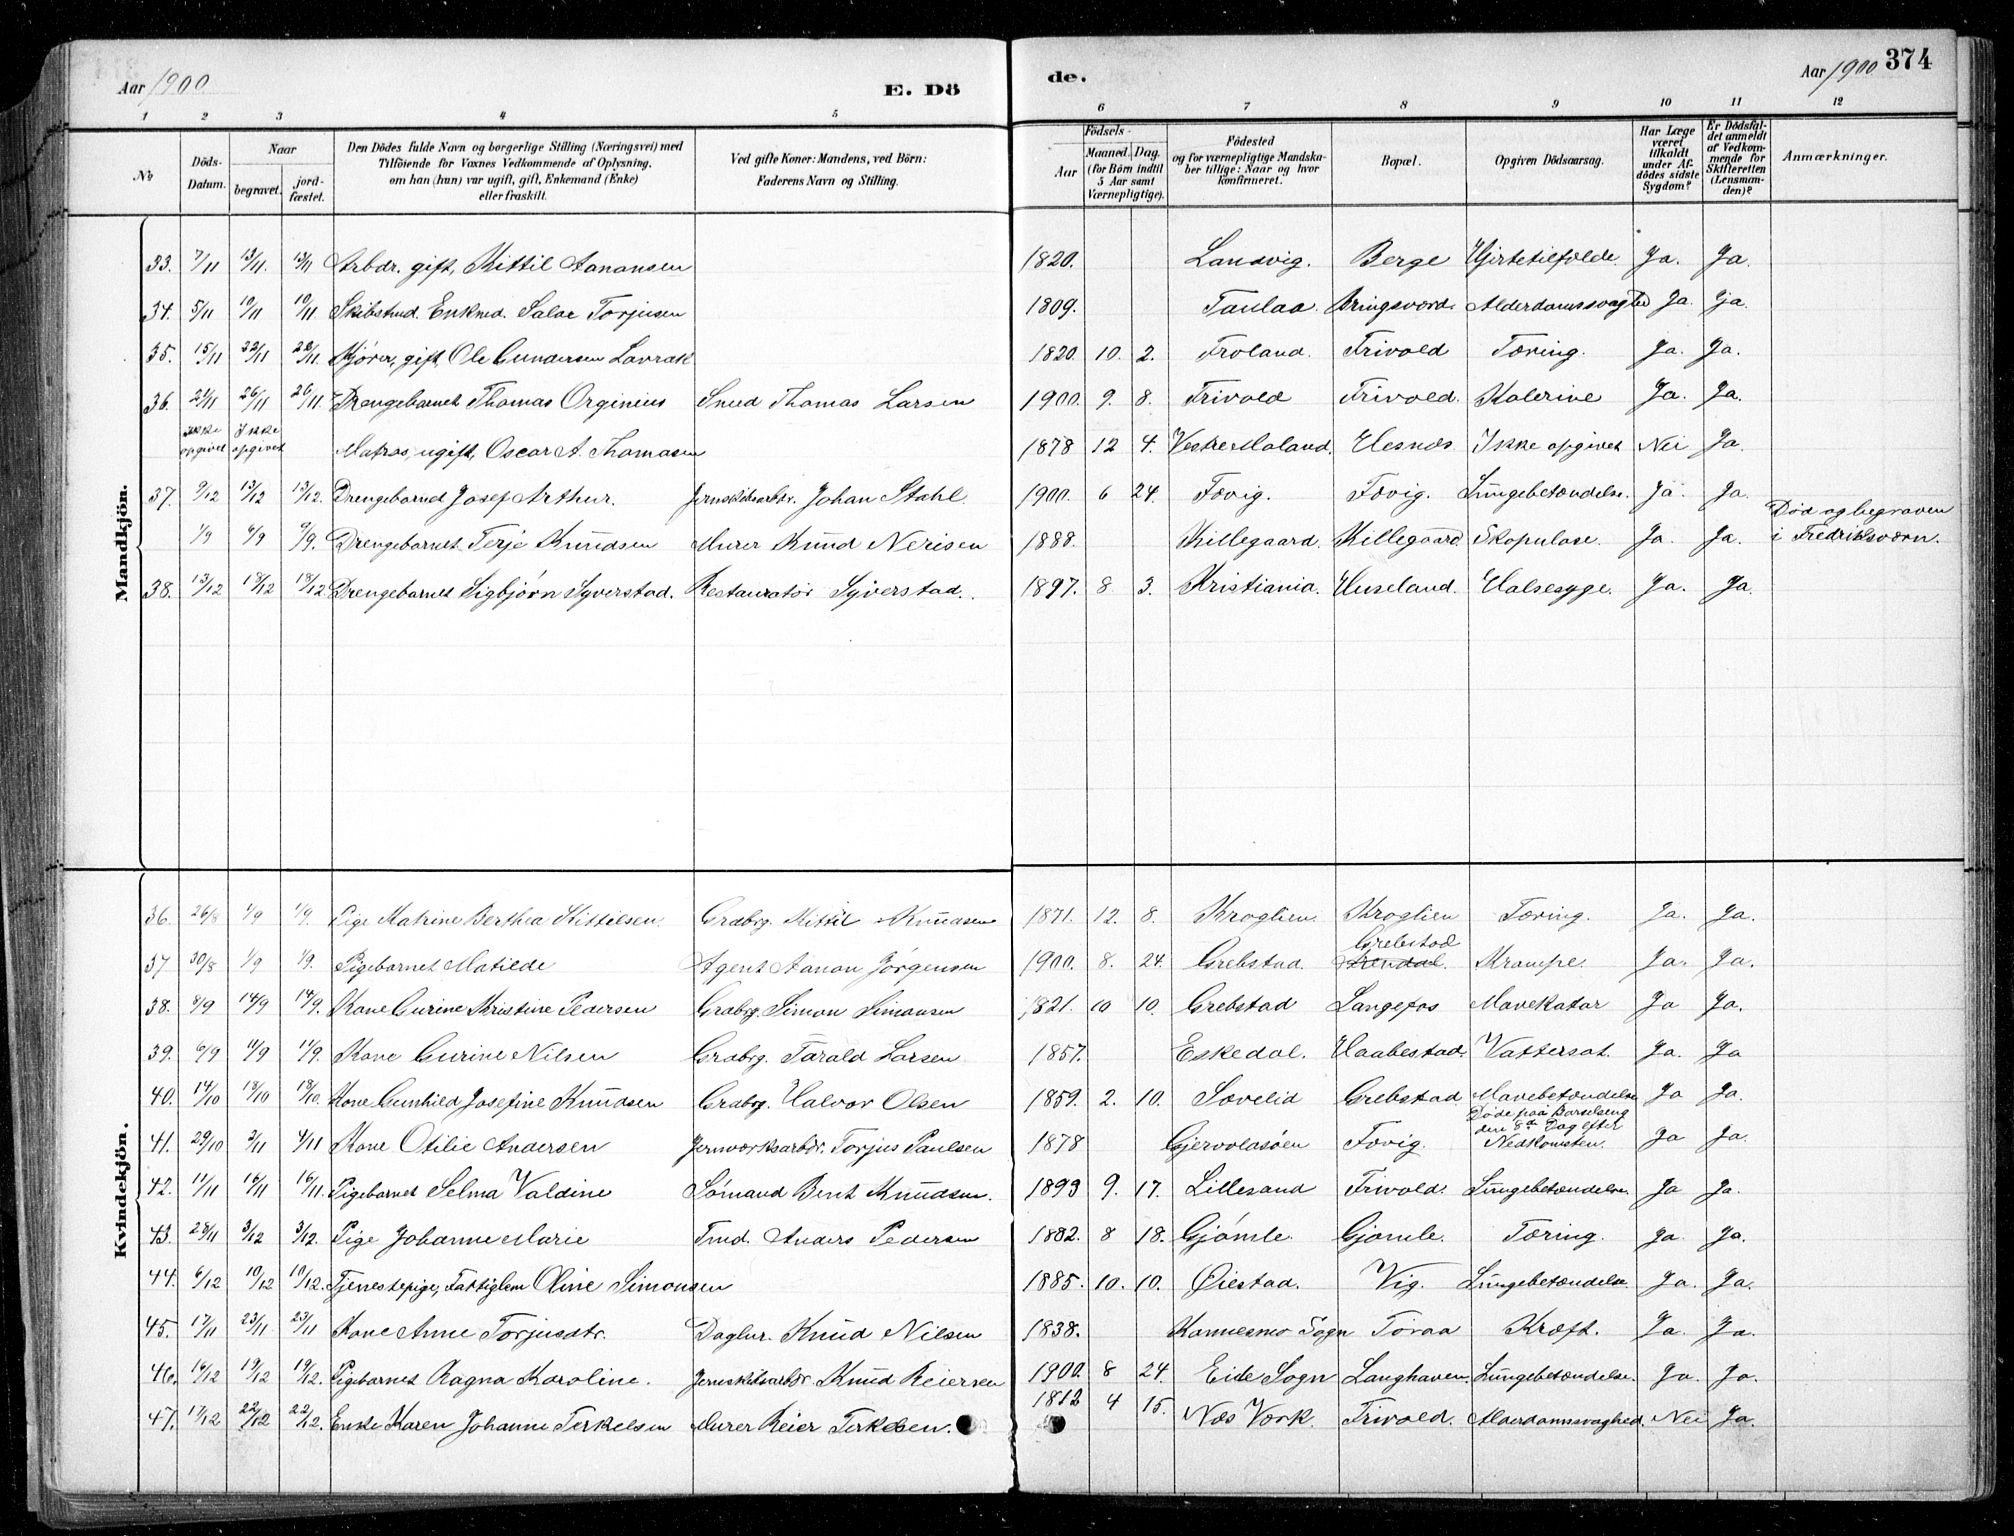 Aar 1900
E. Dö
de.
Aar 1900 374
1 2 3 4 5 6 7 8 9 10 11 12
No
Döds-Datum.
Naar
begravet.
jord-fæstet.
Den Dödes fulde Navn og borgerlige Stilling (Næringsvei) med
Tilföiende for Voxnes Vedkommende af Oplysning,
om han (hun) var ugift, gift, Enkemand (Enke)
eller fraskilt.
Ved gifte Koner: Mandens, ved Börn:
Faderens Navn og Stilling.
Födsels-
Aar
Maaned. Dag.
(for Börn indtil
5 Aar samt
Værnepligtige).
Födested
og for værnepligtige Mandska-
ber tillige: Naar og hvor
konfirmeret.
Bopæl.
Opgiven Dödsaarsag.
Har Læge
været
tilkaldt
under Af-
dödes sidste
Sygdom?
Er Dödsfal-
det anmeldt
af Vedkom-
mende for
Skifteretten
(Lensman-
den)?
Anmærkninger.
Mandkjön.
33. 7/11 13/11. 13/11 Arbdr. gift, Kittil Aanonsen 1820. Landvig. Berge Hjertetilfælde. Ja. Ja.
34. 5/11 10/11 10/11. Skibstmd. Enkmd. Salve Torjusen 1809. Taulaa. Bringsværd. Alderdomssvaghed Ja. Ja.
35. 15/11 22/11 22/11. gift, Ole Gundersen Lavrak 1820. 10. 2. Froland. Frivold Tæring. Ja. Ja.
36. 21/11 26/11 26/11. Drengebarnet Thomas Orginius Smed Thomas Larsen 1900. 9. 8. Frivold Frivold. Kolerine Ja. Ja.
Ikke opgivet Ikke opgivet Matros, ugift, Oscar A. Thomasen 1878 12 4. Vestre Moland. Hesnæs. Ikke opgivet Nei Ja.
37. 9/12 13/12 13/12. Drengebarnet Josef Arthur. Jernskibsarbdr. Johan Stahl 1900. 6 24. Fævig. Fævig. Lungebetændelse. Ja. Ja.
1/9 6/9 9/9. Drengebarnet Terje Knudsen Murer Knud Nerisen 1888. Killegaard. Killegaard. Skopulose. Ja. Ja. Död og begraven
i Fredriksværn.
38. 13/12 18/12 18/12 Drengebarnet Sigbjörn Syverstad. Restauratör Syverstad. 1897. 8 3. Kristiania. Huseland. Halsesyge. Ja. Ja.
Kvindekjön.
36. 26/8 1/9 1/9. Pige Katrine Berthea Kittilsen. Grdbrg. Kittil Knudsen 1871. 12. 8. Kroglien. Kroglien Tæring. Ja. Ja.
37 30/8 1/9 1/9. Pigebarnet Matilde Agent Aanon Jörgensen 1900. 8. 24. Grebstad. Grebstad Arendal. Krampe. Ja. Ja.
38. 8/9 14/9 14/9. Kone Gurine Kristine Pedersen Grdbrg. Simon Simonsen 1821. 10 10. Grebstad Langefos Mavekatar Ja Ja.
39. 6/9 11/9 11/9. Kone Gurine Nilsen Grdbrg. Tarald Larsen 1857. Eskedal. Haabestad. Vattersot. Ja. Ja
40. 14/10 18/10 18/10. Kone Gunhild Josefine Knudsen Grdbrg. Halvor Olsen 1859. 2. 10. Sævelid Grebstad Mavebetændelse Ja Ja.
41. 29/10 3/11 4/11 Kone Otilie Andersen Jernværksarbdr. Torjus Paulsen 1878 Gjervoldsöen Fævig. Döde paa Barselseng
den 8de Dag efter
Nedkomsten. Ja Ja.
42. 11/11 16/11 16/11. Pigebarnet Selma Valdine Sömand Bent Knudsen. 1893 9. 17. Lillesand Frivold. Lungebetændelse. Ja Ja.
43. 28/11 3/12 3/12. Pige Johanne Marie Tmd. Anders Pedersen 1882. 8 18. Gjömle. Gjömle. Tæring. Ja. Ja.
44. 6/12 10/12 10/12. Tjenestepige, Fattiglem Oline Simonsen 1885. 10. 10. Öiestad. Vig. Lungebetændelse. Ja. Ja.
45. 17/11 23/11 23/11 Kone Anne Torjusdtr. Daglnr. Knud Nilsen 1838. Sogn Toraa Kræft. Ja. Ja.
46. 16/12 19/12 19/12. Pigebarnet Ragna Karoline. Jernskibsarbdr. Knud Reiersen 1900. 8 24. Eide Sogn Langhaven. Lungebetændelse. Ja. Ja.
47. 17/12 22/12 22/12. Enke Karen Johanne Terkelsen Murer Reier Terkelsen. 1812 4 15. Næs Værk. Frivold. Alderdomssvaghed. Nei Ja.